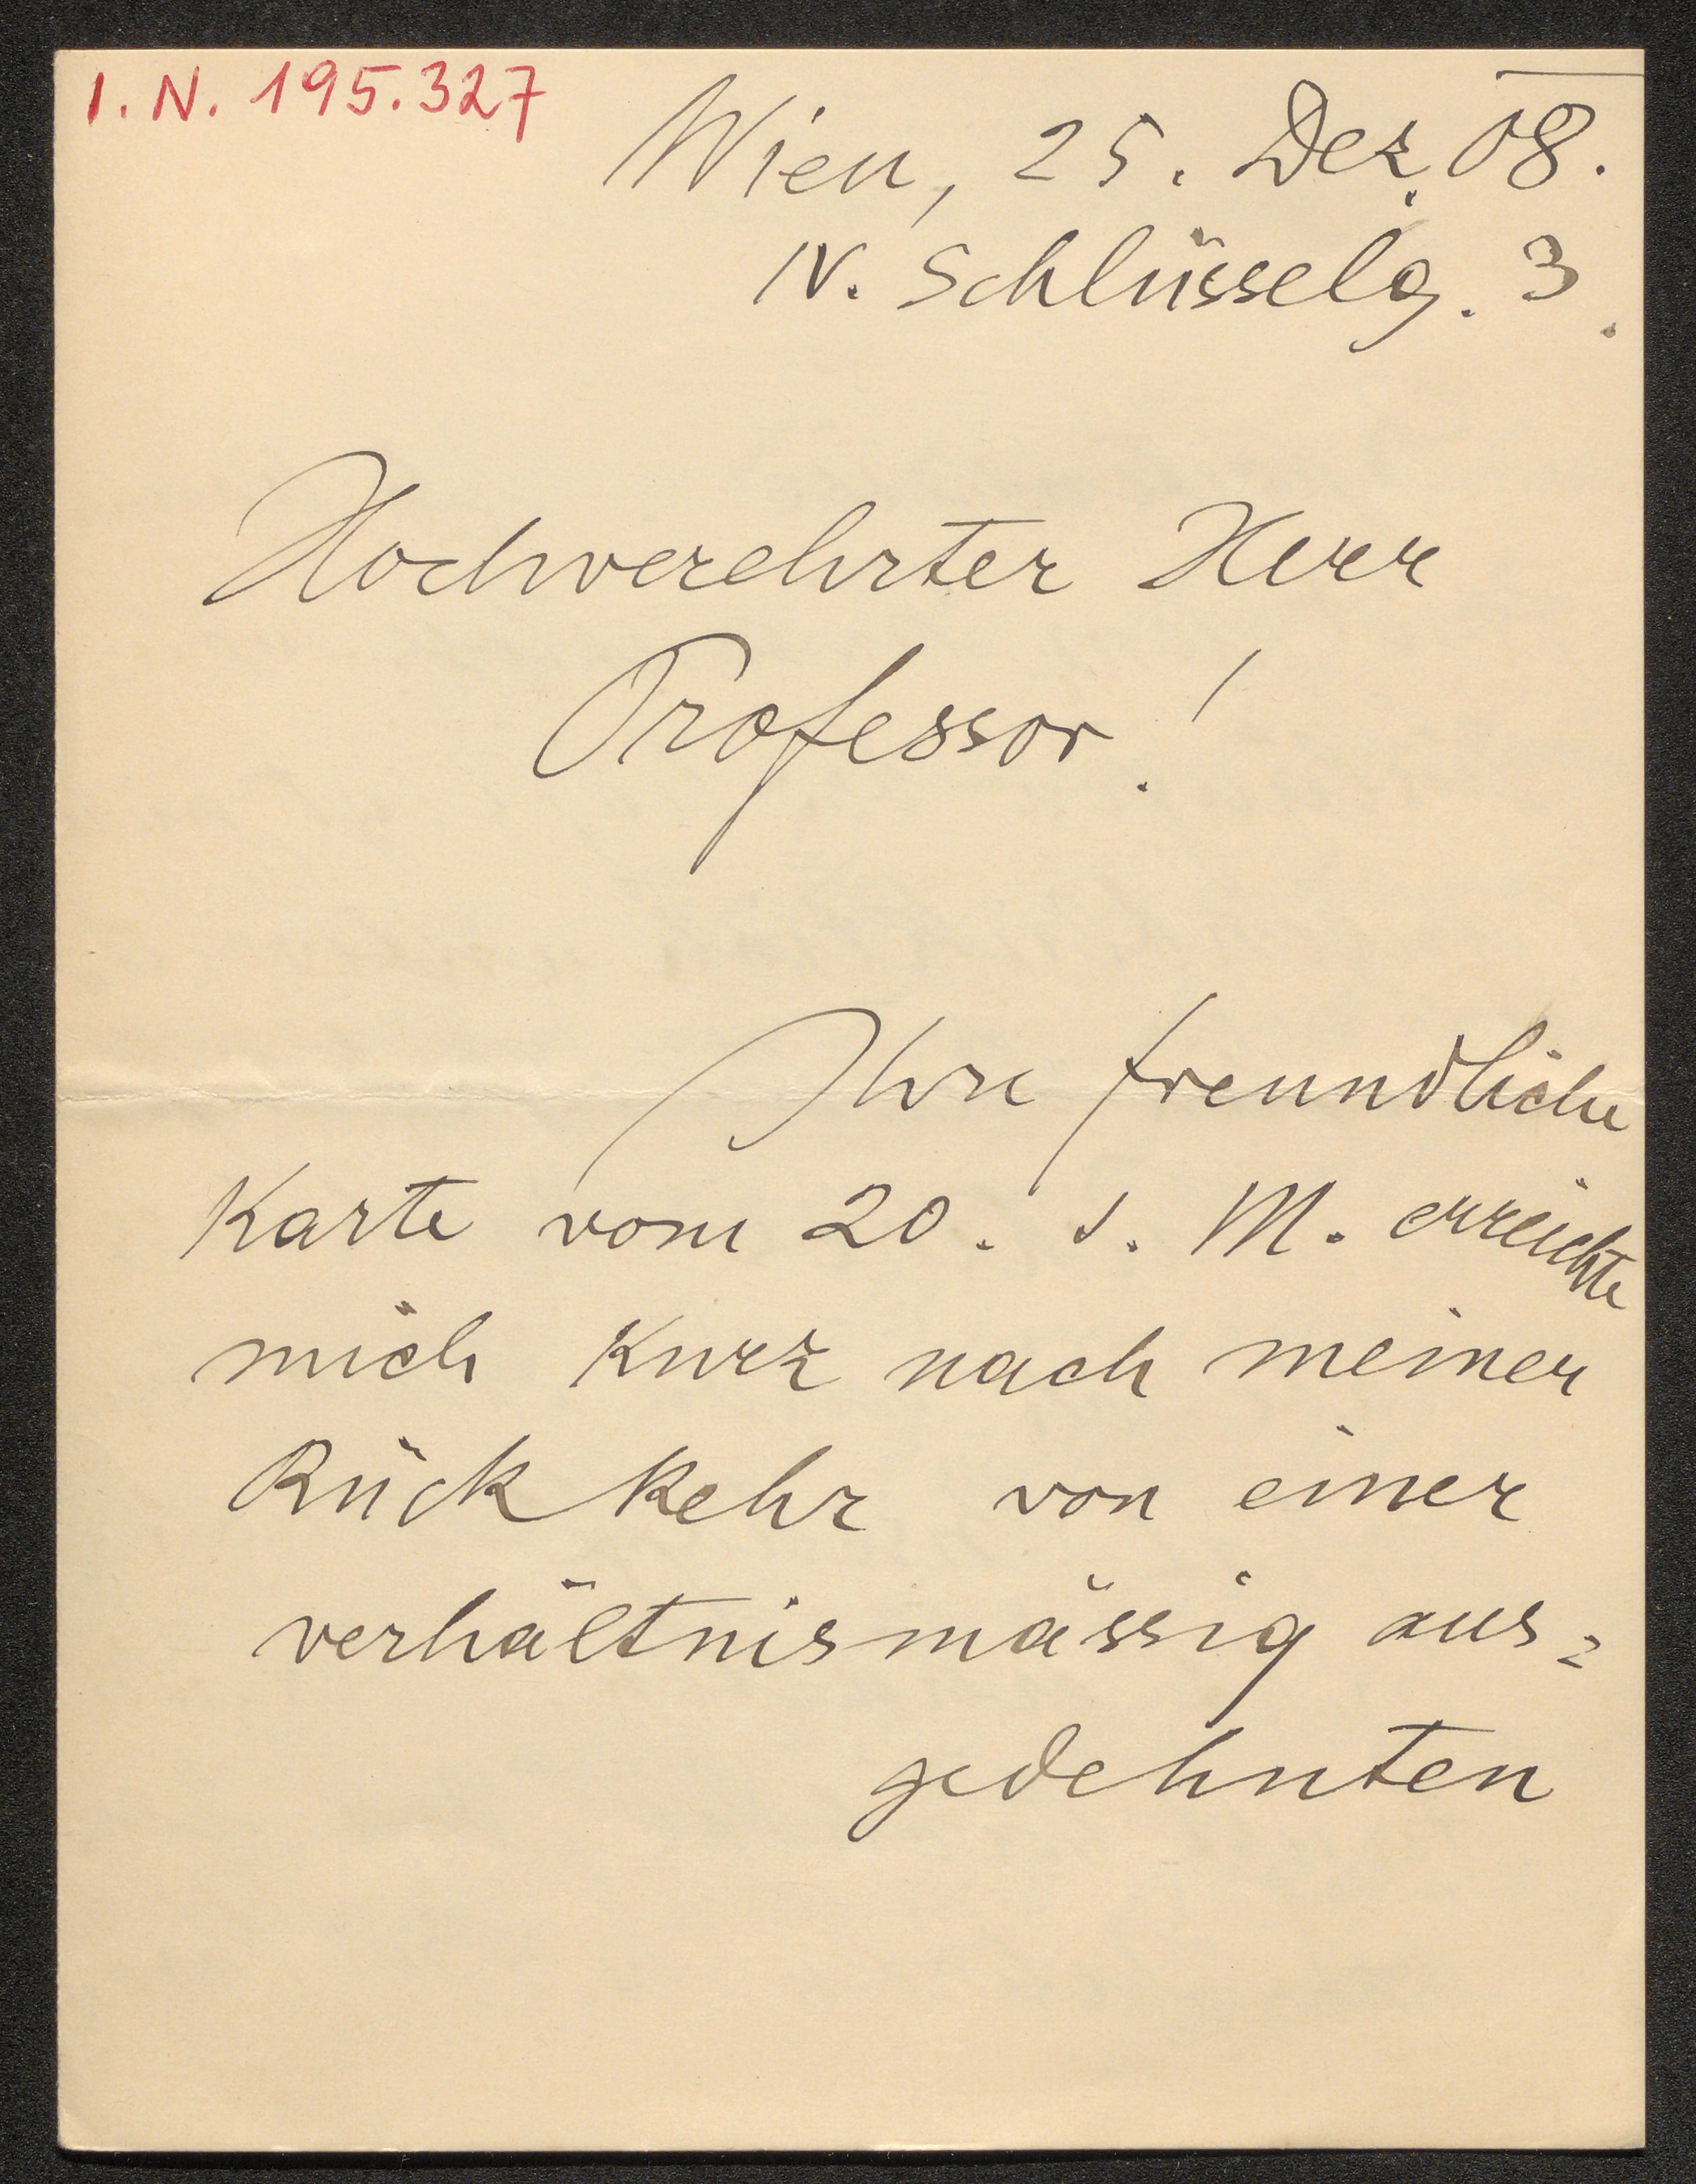 I. N. 195.327
Wien, 25. Dez. 08.
IV. Schlüsselg. 3.
Hochverehrter Herr
Professor!
Ihre freundliche
Karte vom 20. d. M. erreichte
mich kurz nach meiner
Rückkehr von einer
verhältnismässig aus=
gedehnten